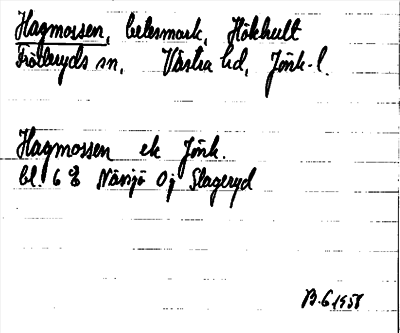 Hagmossen, betesmark, Hökhult
Fröderyds sn, Västra hd, Jönk. l.
Hagmossen ek Jönk.
bl. 6 E Nävsjö Oj Slageryd
B. G 1958